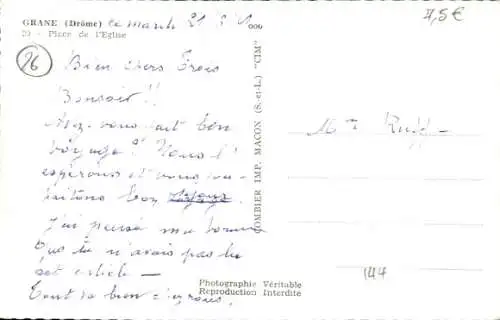 GRANE (Drôme) ce mardi 21
20 - Place de l'Eglise
4,5€
26
Bien chers Trois
Bonsoir !!
Avez-vous fait bon
voyage ? Nous l'
espérons et vous
bon séjour
J'ai pensé ma bonne
que tu n'avais pas lu
cet article —
Tout va bien
COMBIER IMP. MACON (S.-et-L.) "CIM"
Photographie Véritable
Reproduction Interdite
Mme Ruff
144